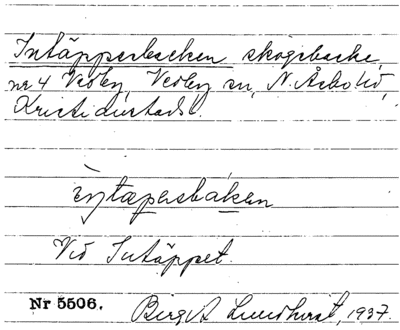 Intäppesbacken skogsbacke,
nr 4 Vedby, Vedby sn, N. Åsbo hd,
Kristianstads l.
ìŋtapesbakən
Vid Intäppet.
Nr 5506. Birgit Lundhurst, 1937.